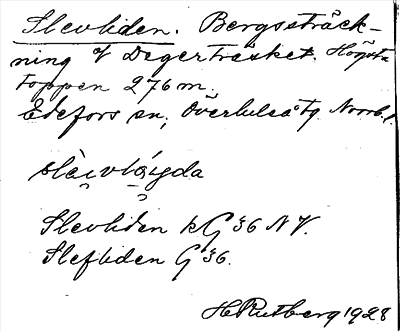 Slevliden. Bergssträck-
ning V Degerträsket. Högsta
toppen 276 m.
Edefors sn, Överluleå tg. Norrb. l.
Slevliden kG 36 NV.
Slefliden G 36.
H Rutberg 1928